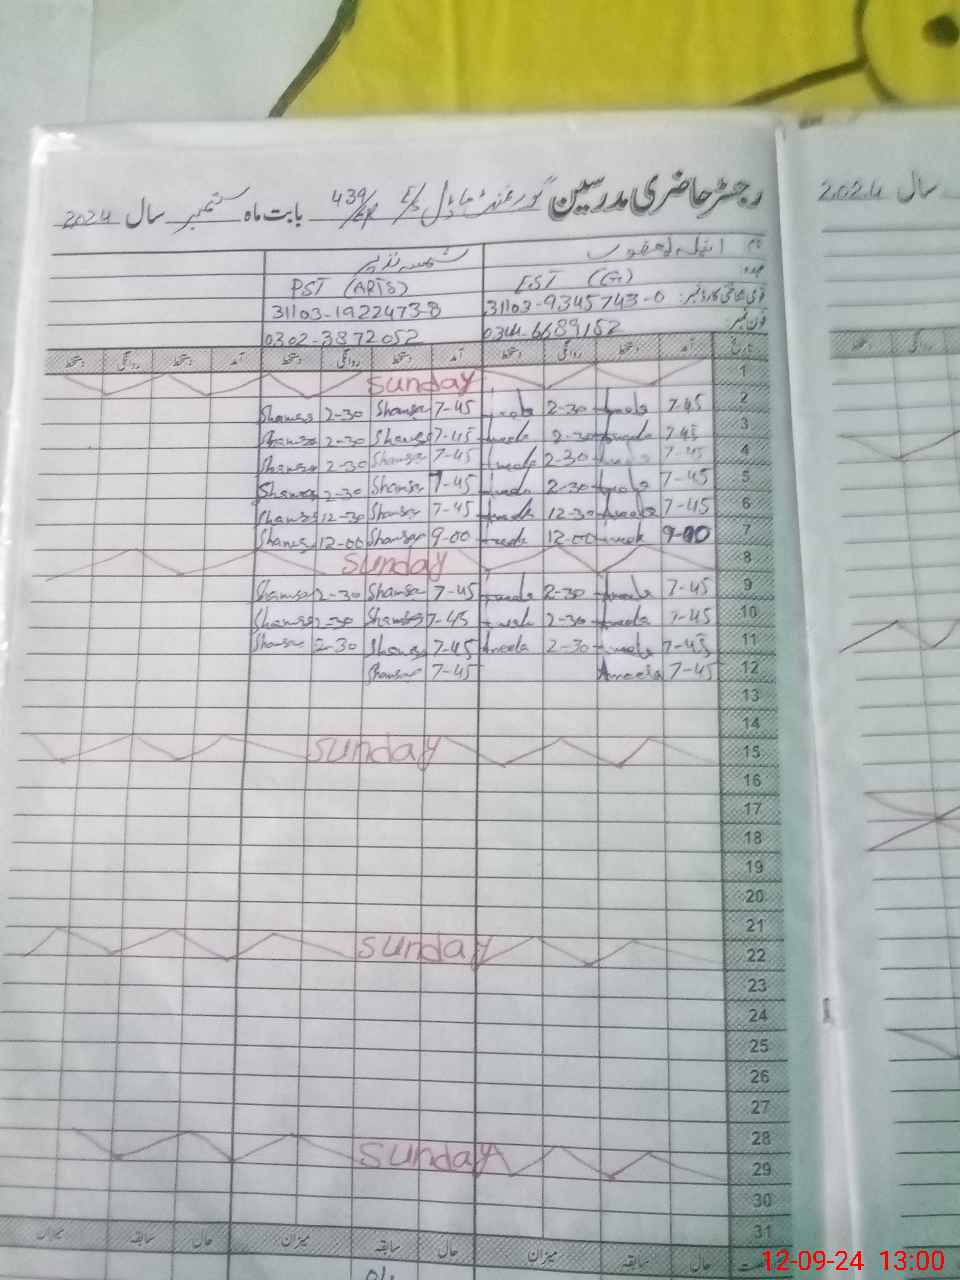 رجسٹر حاضری مدرسین گورنمنٹ ماڈل E/S 439/ بابت ماہ ستمبر سال 2024
سال 2024
نام
عہدہ EST (G) PST (ARTS)
قومی شناختی کارڈ نمبر: 31103-9345743-0 31103-1922473-8
فون نمبر: 0344-6689152 0302-3872052
تاریخ آمد دستخط روانگی دستخط آمد دستخط روانگی دستخط آمد دستخط روانگی دستخط
1 sunday
2 7-45 Aneela 2-30 Aneela 7-45 Shamsa 2-30 Shamsa
3 7-45 Aneela 2-30 Aneela 7-45 Shamsa 2-30 Shamsa
4 7-45 Aneela 2-30 Aneela 7-45 Shamsa 2-30 Shamsa
5 7-45 Aneela 2-30 Aneela 7-45 Shamsa 2-30 Shamsa
6 7-45 Aneela 12-30 Aneela 7-45 Shamsa 12-30 Shamsa
7 9-00 Aneela 12-00 Aneela 9-00 Shamsa 12-00 Shamsa
8 sunday
9 7-45 Aneela 2-30 Aneela 7-45 Shamsa 2-30 Shamsa
10 7-45 Aneela 2-30 Aneela 7-45 Shamsa 2-30 Shamsa
11 7-45 Aneela 2-30 Aneela 7-45 Shamsa 2-30 Shamsa
12 7-45 Aneela 7-45 Shamsa
13
14
15 sunday
16
17
18
19
20
21
22 sunday
23
24
25
26
27
28
29 sunday
30
31
حال سابقہ میزان حال سابقہ میزان حال سابقہ میزان
12-09-24 13:00